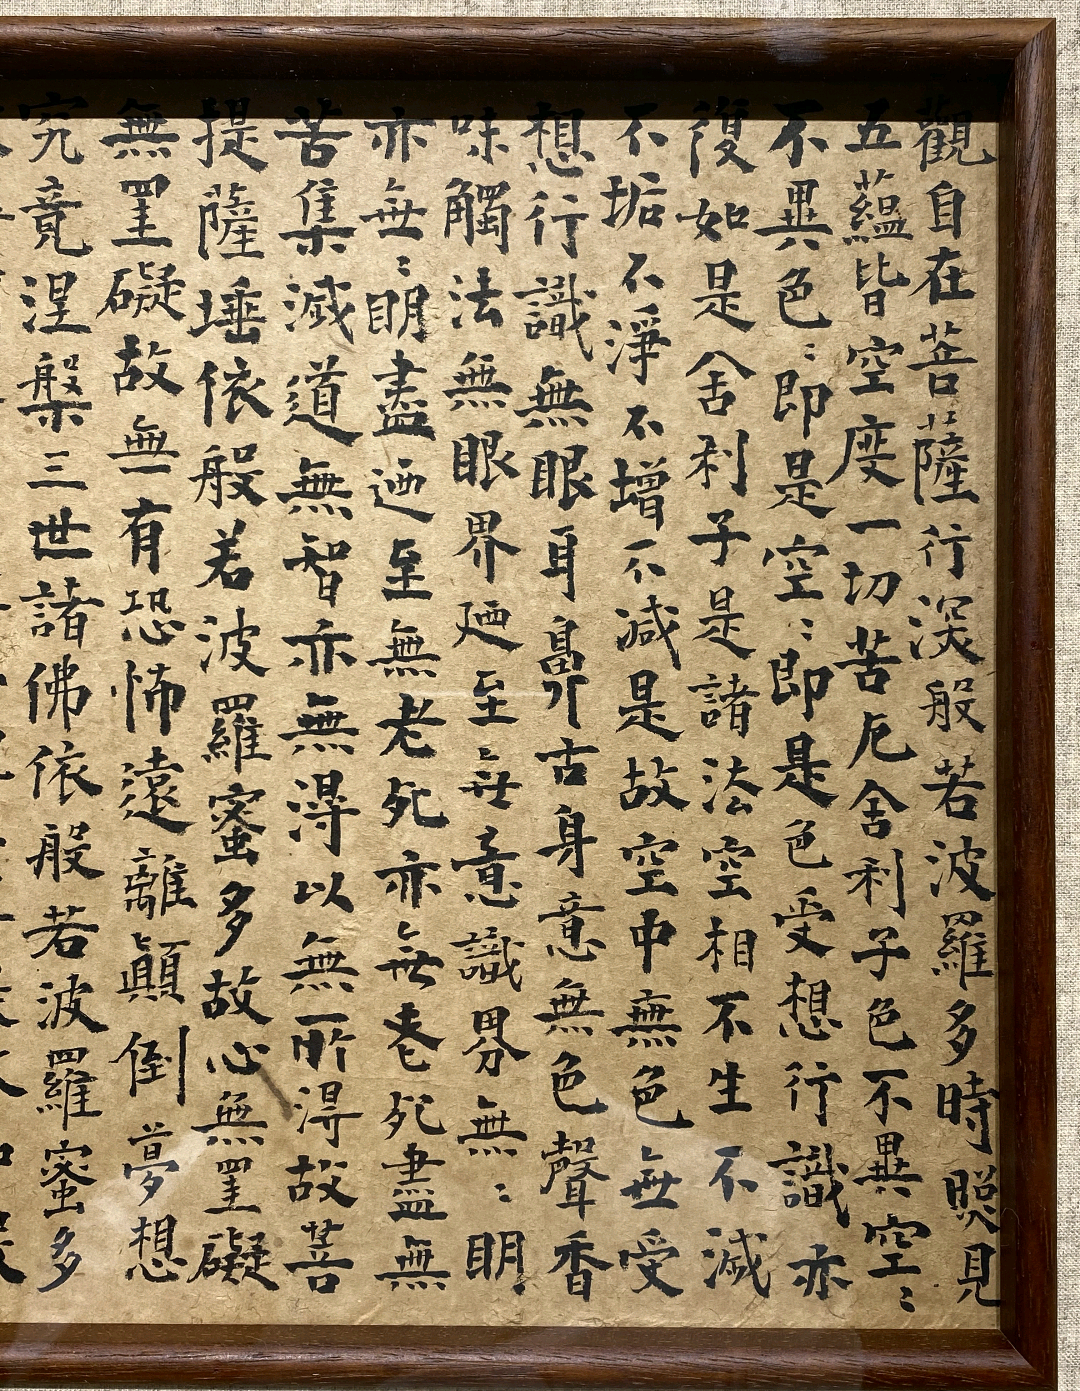 觀自在菩薩行深般若波羅多時照見
五蘊皆空度一切苦厄舍利子色不異空〻
不異色〻即是空〻即是色受想行識亦
復如是舍利子是諸法空相不生不滅
不垢不淨不增不減是故空中無色無受
想行識無眼耳鼻舌身意無色聲香
味觸法無眼界廼至無意識界無〻明
亦無〻明盡迺至無老死亦無老死盡無
苦集滅道無智亦無得以無所得故菩
提薩埵依般若波羅蜜多故心無罣礙
無罣礙故無有恐怖遠離顛倒夢想
究竟涅槃三世諸佛依般若波羅蜜多